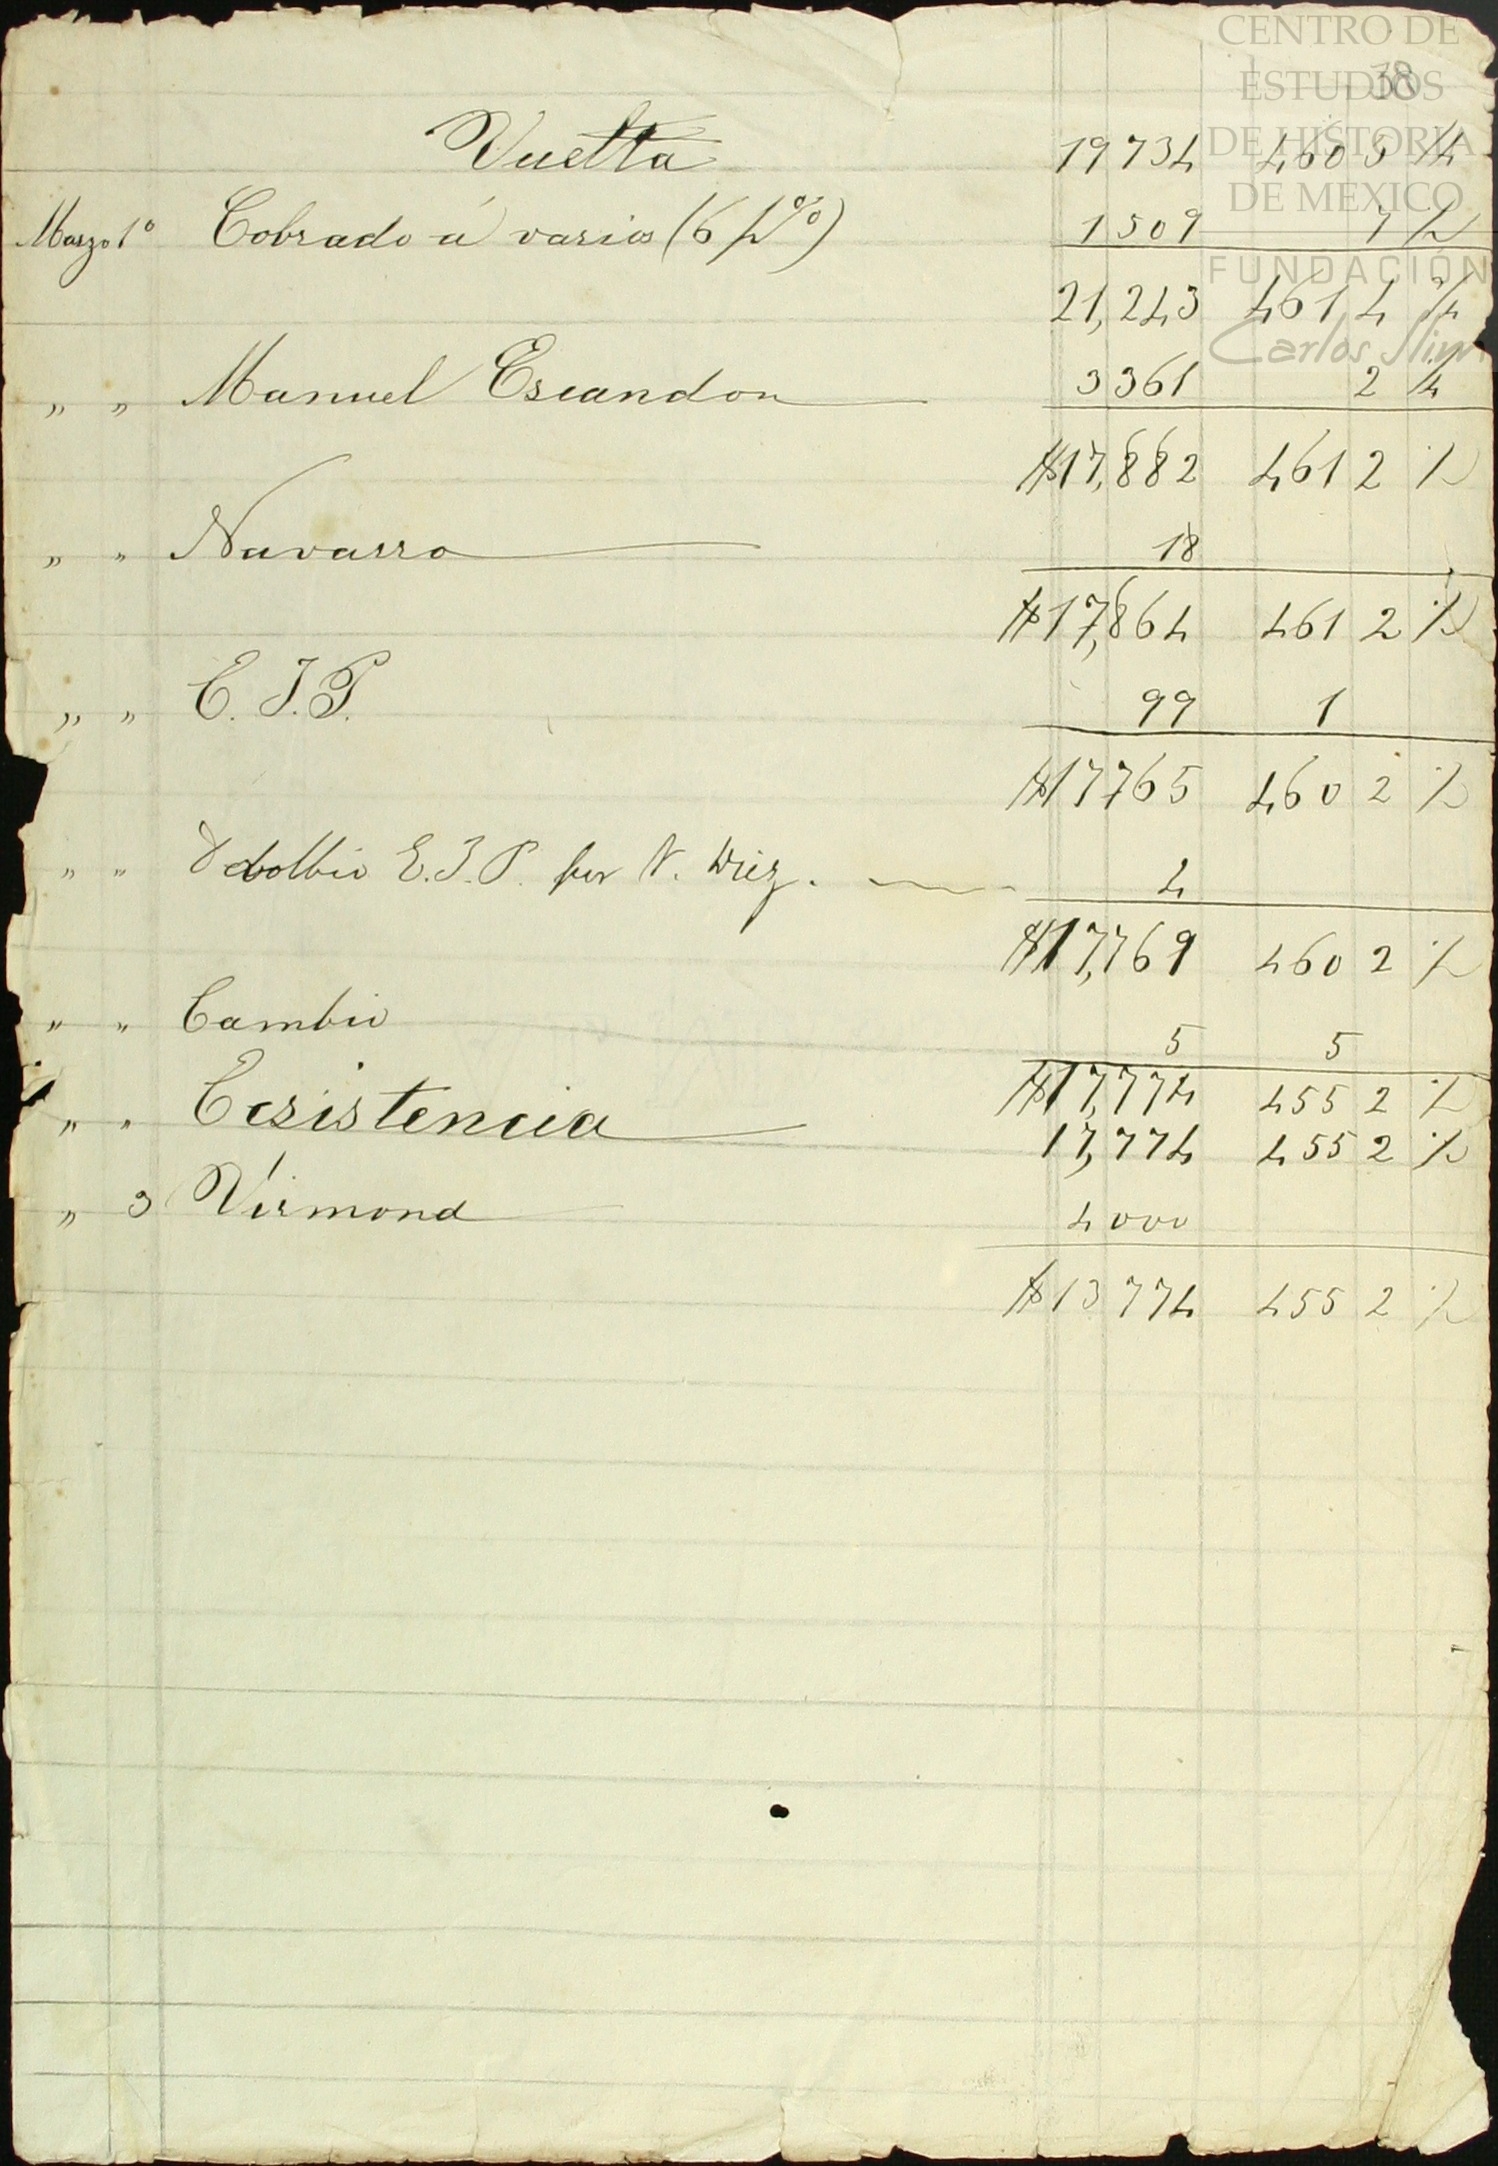 38
CENTRO DE
ESTUDIOS
DE HISTORIA
DE MEXICO
FUNDACIÓN
Carlos Slim
Vuelta 19734 460 5
Marzo 1º Cobrado á varios (6 p%) 1509 7 ½
21,243 461 4
„ „ Manuel Escandon 3361 2
$17,882 461 2 ½
„ „ Navarro 18
$17,864 461 2 ½
„ „ E. J. P. 99 1
$17765 460 2 ½
„ „ Debolbio E. J. P. por N. 4
$17,769 460 2 ½
„ „ Cambio 5 5
$17,774 455 2 ½
„ „ Ecsistencia 17,774 455 2 ½
„ 3 Virmond 4000
$13774 455 2 ½